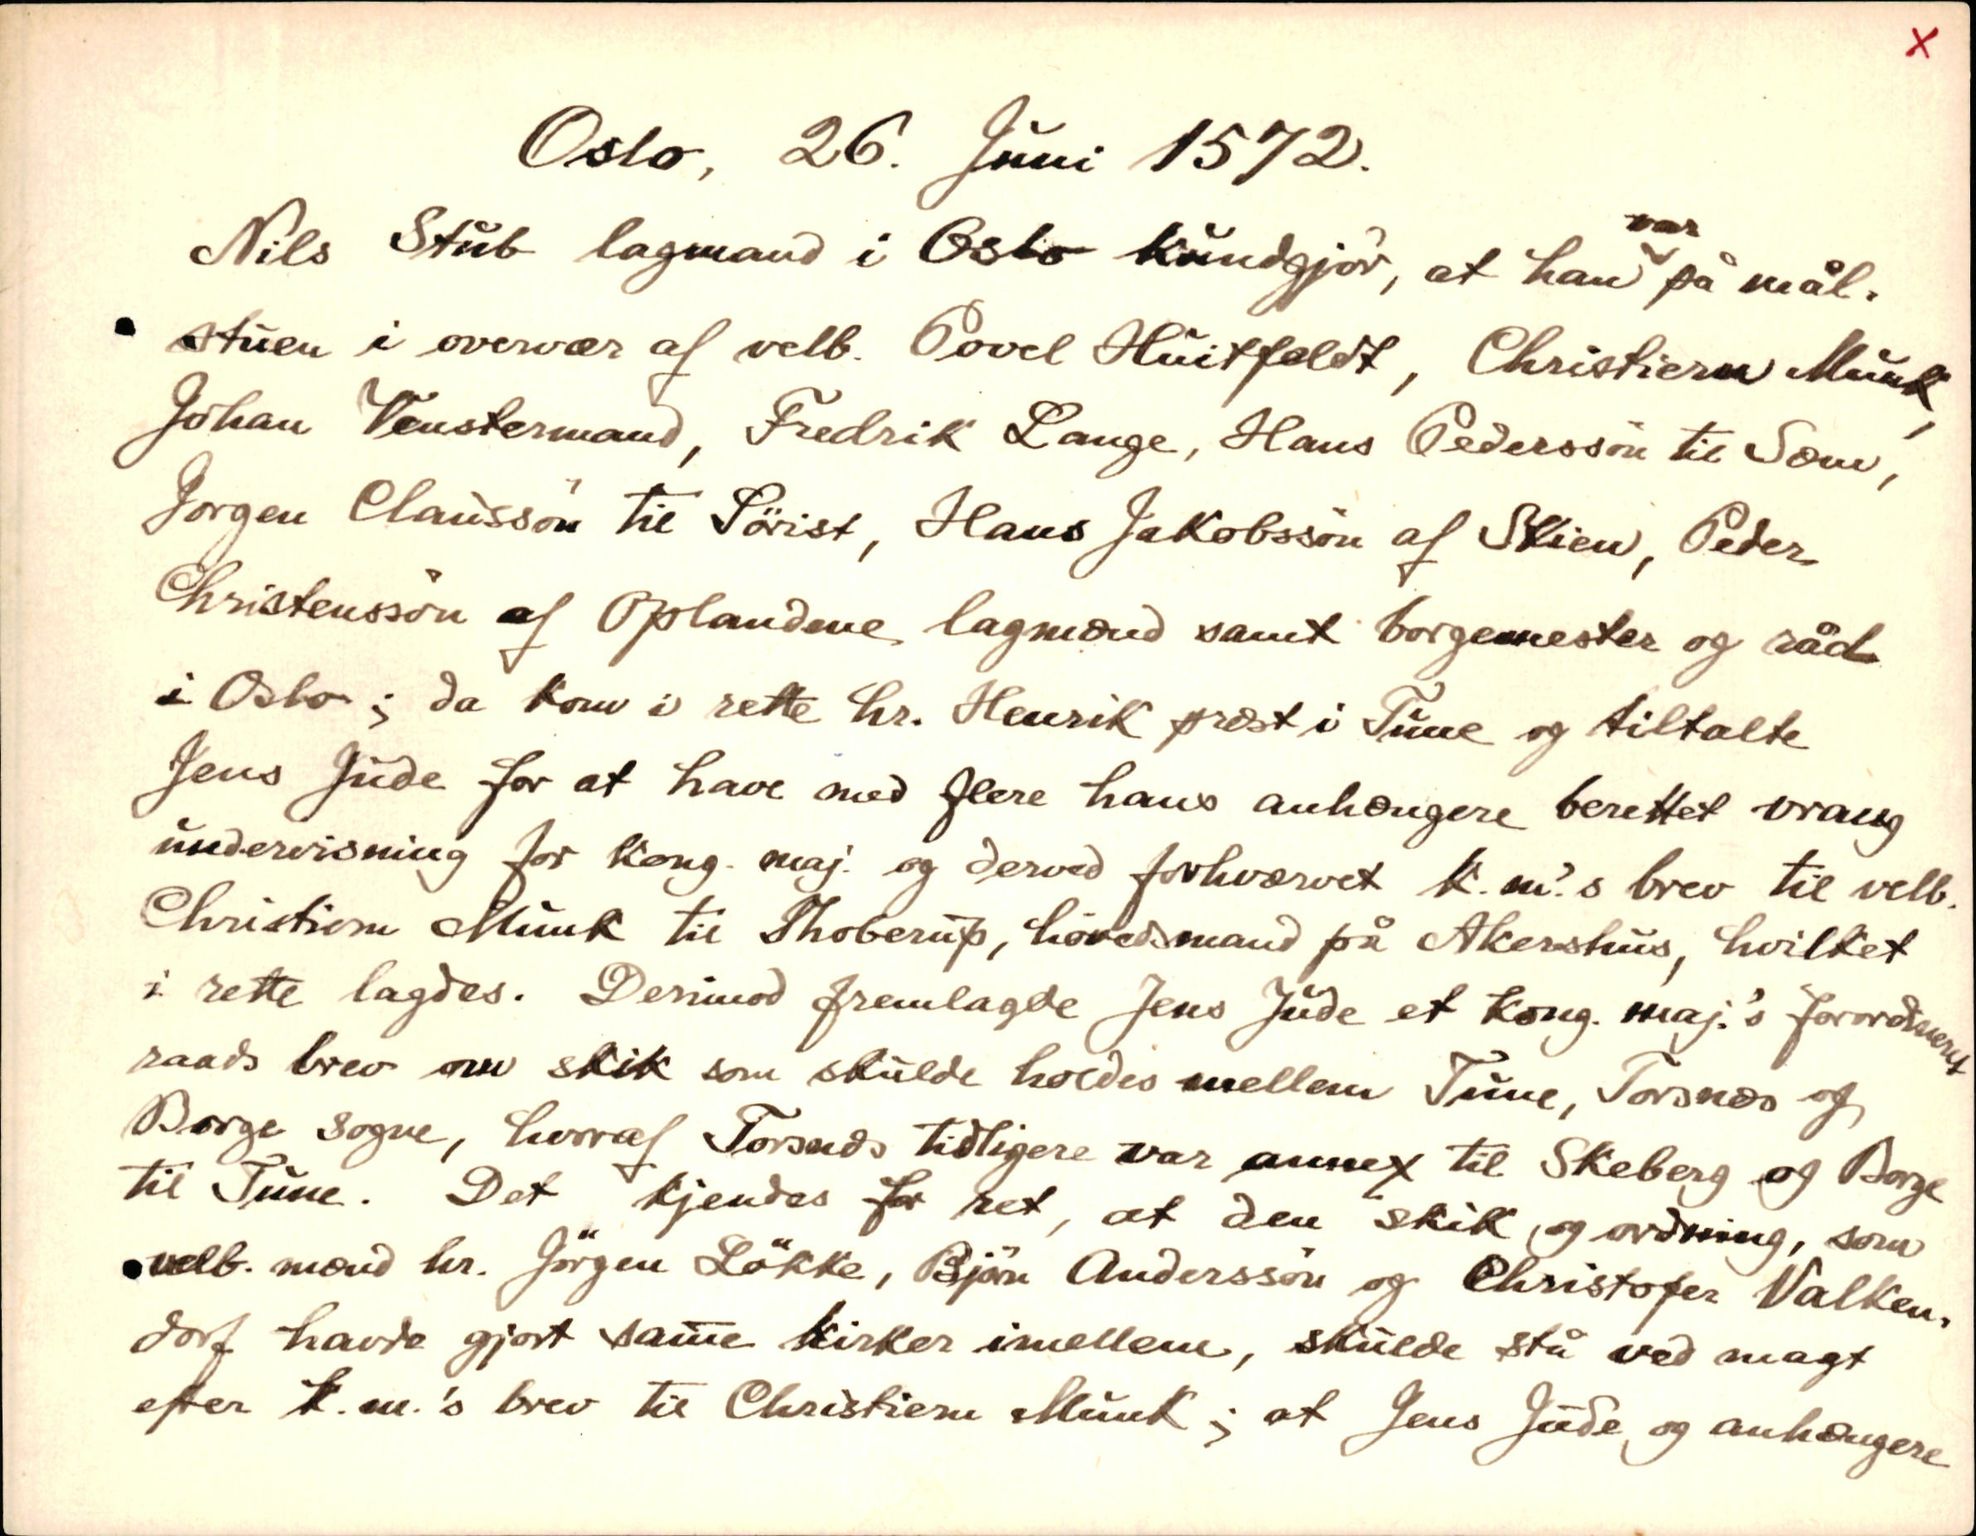 x
Oslo, 26. Juni 1572.
Nils Stub lagmand i Oslo kundgjör, at han var på mål-
stuen i overvær af velb. Povel Huitfeldt, Christiern Munk,
Johan Venstermand, Fredrik Lange, Hans Pederssön til Sæm,
Jörgen Claussön til Börist, Hans Jakobssön af Skien, Peder
Christenssön af Oplandene lagmænd samt borgemester og råd
i Oslo; da kom i rette hr. Henrik præst i Tune og tiltalte
Jens Jude for at have med flere hans anhængere berettet vrang
undervisning for kong. maj. og derved forhværvet k. m.'s brev til velb.
Christiern Munk til Thoberup, hövedsmand på Akershus, hvilket
i rette lagdes. Derimod fremlagde Jens Jude et kong. maj.'s forordineret
raads brev om skik som skulde holdes mellem Tune, Torsnæs og
Borge sogne, hvoraf Torsnæs tidligere var annex til Skeberg og Borge
til Tune. Det kjendes for ret, at den skik og ordning, som
velb. mænd hr. Jörgen Lökke, Björn Anderssön og Christofer Valken-
dorf havde gjort samme kirker imellem, skulde stå ved magt
efter k. m.'s brev til Christiern Munk; at Jens Jude og anhængere